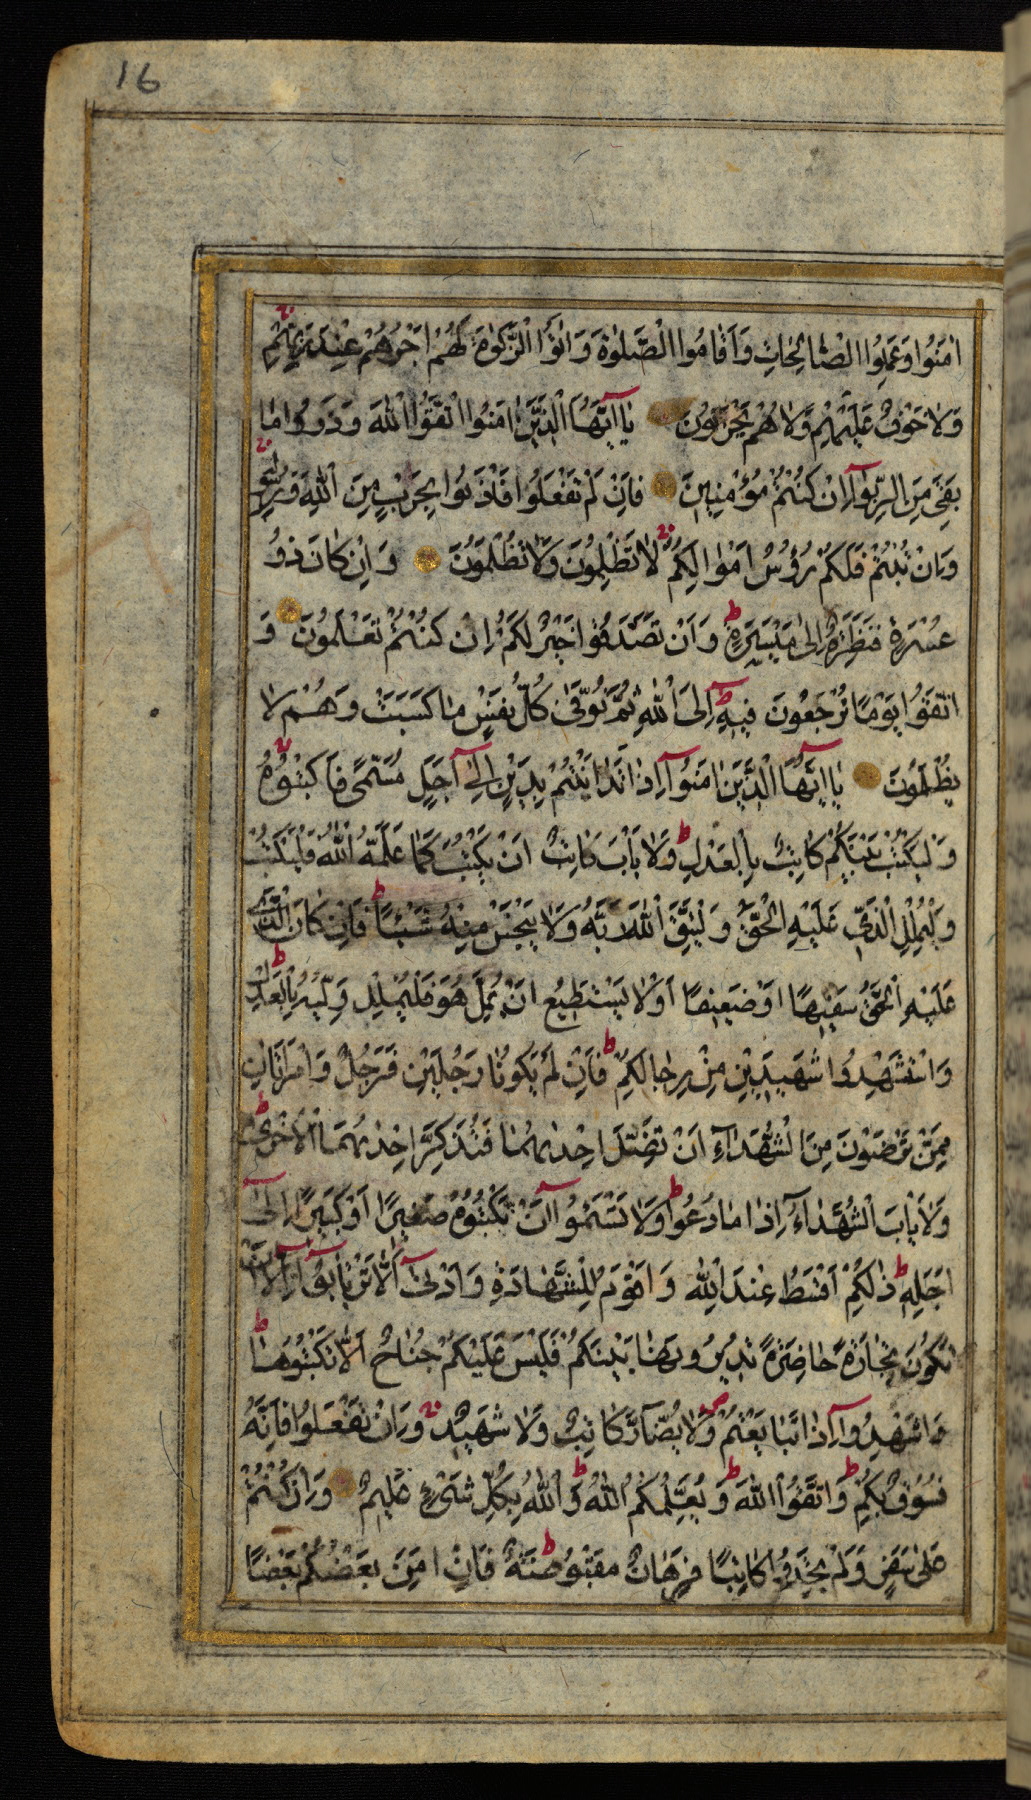 16
اٰمَنُوا وَعَمِلُوا الصّٰالِحٰاتِ وَاَقٰامُوا الصَّلٰوةَ وَاٰتَوُا الزَّكٰوةَ لَهُمْ اَجْرُهُمْ عِنْدَ رَبِّهِمْ
وَلٰا خَوْفٌ عَلَيْهِمْ وَلٰا هُمْ يَحْزَنُونَ يٰا اَيُّهَا الَّذِينَ اٰمَنُوا اتَّقُوا اللّٰهَ وَذَرُوا مٰا
بَقِيَ مِنَ الرِّبٰوا اِنْ كُنْتُمْ مُؤْمِنِينَ فَاِنْ لَمْ تَفْعَلُوا فَاْذَنُوا بِحَرْبٍ مِنَ اللّٰهِ وَرَسُولِهِ
وَاِنْ تُبْتُمْ فَلَكُمْ رُؤُسُ اَمْوٰالِكُمْ لٰا تَظْلِمُونَ وَلٰا تُظْلَمُونَ وَاِنْ كٰانَ ذُو
عُسْرَةٍ فَنَظِرَةٌ اِلٰى مَيْسَرَةٍ وَاَنْ تَصَدَّقُوا خَيْرٌ لَكُمْ اِنْ كُنْتُمْ تَعْلَمُونَ وَ
اتَّقُوا يَوْمًا تُرْجَعُونَ فِيهِ اِلَى اللّٰهِ ثُمَّ تُوَفّٰى كُلُّ نَفْسٍ مٰا كَسَبَتْ وَهُمْ لٰا
يُظْلَمُونَ يٰا اَيُّهَا الَّذِينَ اٰمَنُوا اِذٰا تَدٰايَنْتُمْ بِدَيْنٍ اِلٰى اَجَلٍ مُسَمًّى فَاكْتُبُوهُ
وَلْيَكْتُبْ بَيْنَكُمْ كٰاتِبٌ بِالْعَدْلِ وَلٰا يَاْبَ كٰاتِبٌ اَنْ يَكْتُبَ كَمٰا عَلَّمَهُ اللّٰهُ فَلْيَكْتُبْ
وَلْيُمْلِلِ الَّذِي عَلَيْهِ الْحَقُّ وَلْيَتَّقِ اللّٰهَ رَبَّهُ وَلٰا يَبْخَسْ مِنْهُ شَيْئًا فَاِنْ كٰانَ الَّذِي
عَلَيْهِ الْحَقُّ سَفِيهًا اَوْ ضَعِيفًا اَوْ لٰا يَسْتَطِيعُ اَنْ يُمِلَّ هُوَ فَلْيُمْلِلْ وَلِيُّهُ بِالْعَدْلِ
وَاسْتَشْهِدُوا شَهِيدَيْنِ مِنْ رِجٰالِكُمْ فَاِنْ لَمْ يَكُونٰا رَجُلَيْنِ فَرَجُلٌ وَامْرَاَتٰانِ
مِمَّنْ تَرْضَوْنَ مِنَ الشُّهَدٰاءِ اَنْ تَضِلَّ اِحْدٰيهُمٰا فَتُذَكِّرَ اِحْدٰيهُمَا الْاُخْرٰى
وَلٰا يَاْبَ الشُّهَدٰاءُ اِذٰا مٰا دُعُوا وَلٰا تَسْئَمُوا اَنْ تَكْتُبُوهُ صَغِيرًا اَوْ كَبِيرًا اِلٰى
اَجَلِهِ ذٰلِكُمْ اَقْسَطُ عِنْدَ اللّٰهِ وَاَقْوَمُ لِلشَّهٰادَةِ وَاَدْنٰى اَلّٰا تَرْتٰابُوا اِلّٰا اَنْ
تَكُونَ تِجٰارَةً حٰاضِرَةً تُدِيرُونَهٰا بَيْنَكُمْ فَلَيْسَ عَلَيْكُمْ جُنٰاحٌ اَلّٰا تَكْتُبُوهٰا
وَاَشْهِدُوا اِذٰا تَبٰايَعْتُمْ وَلٰا يُضٰارَّ كٰاتِبٌ وَلٰا شَهِيدٌ وَاِنْ تَفْعَلُوا فَاِنَّهُ
فُسُوقٌ بِكُمْ وَاتَّقُوا اللّٰهَ وَيُعَلِّمُكُمُ اللّٰهُ وَاللّٰهُ بِكُلِّ شَيْءٍ عَلِيمٌ وَاِنْ كُنْتُمْ
عَلٰى سَفَرٍ وَلَمْ تَجِدُوا كٰاتِبًا فَرِهٰانٌ مَقْبُوضَةٌ فَاِنْ اَمِنَ بَعْضُكُمْ بَعْضًا